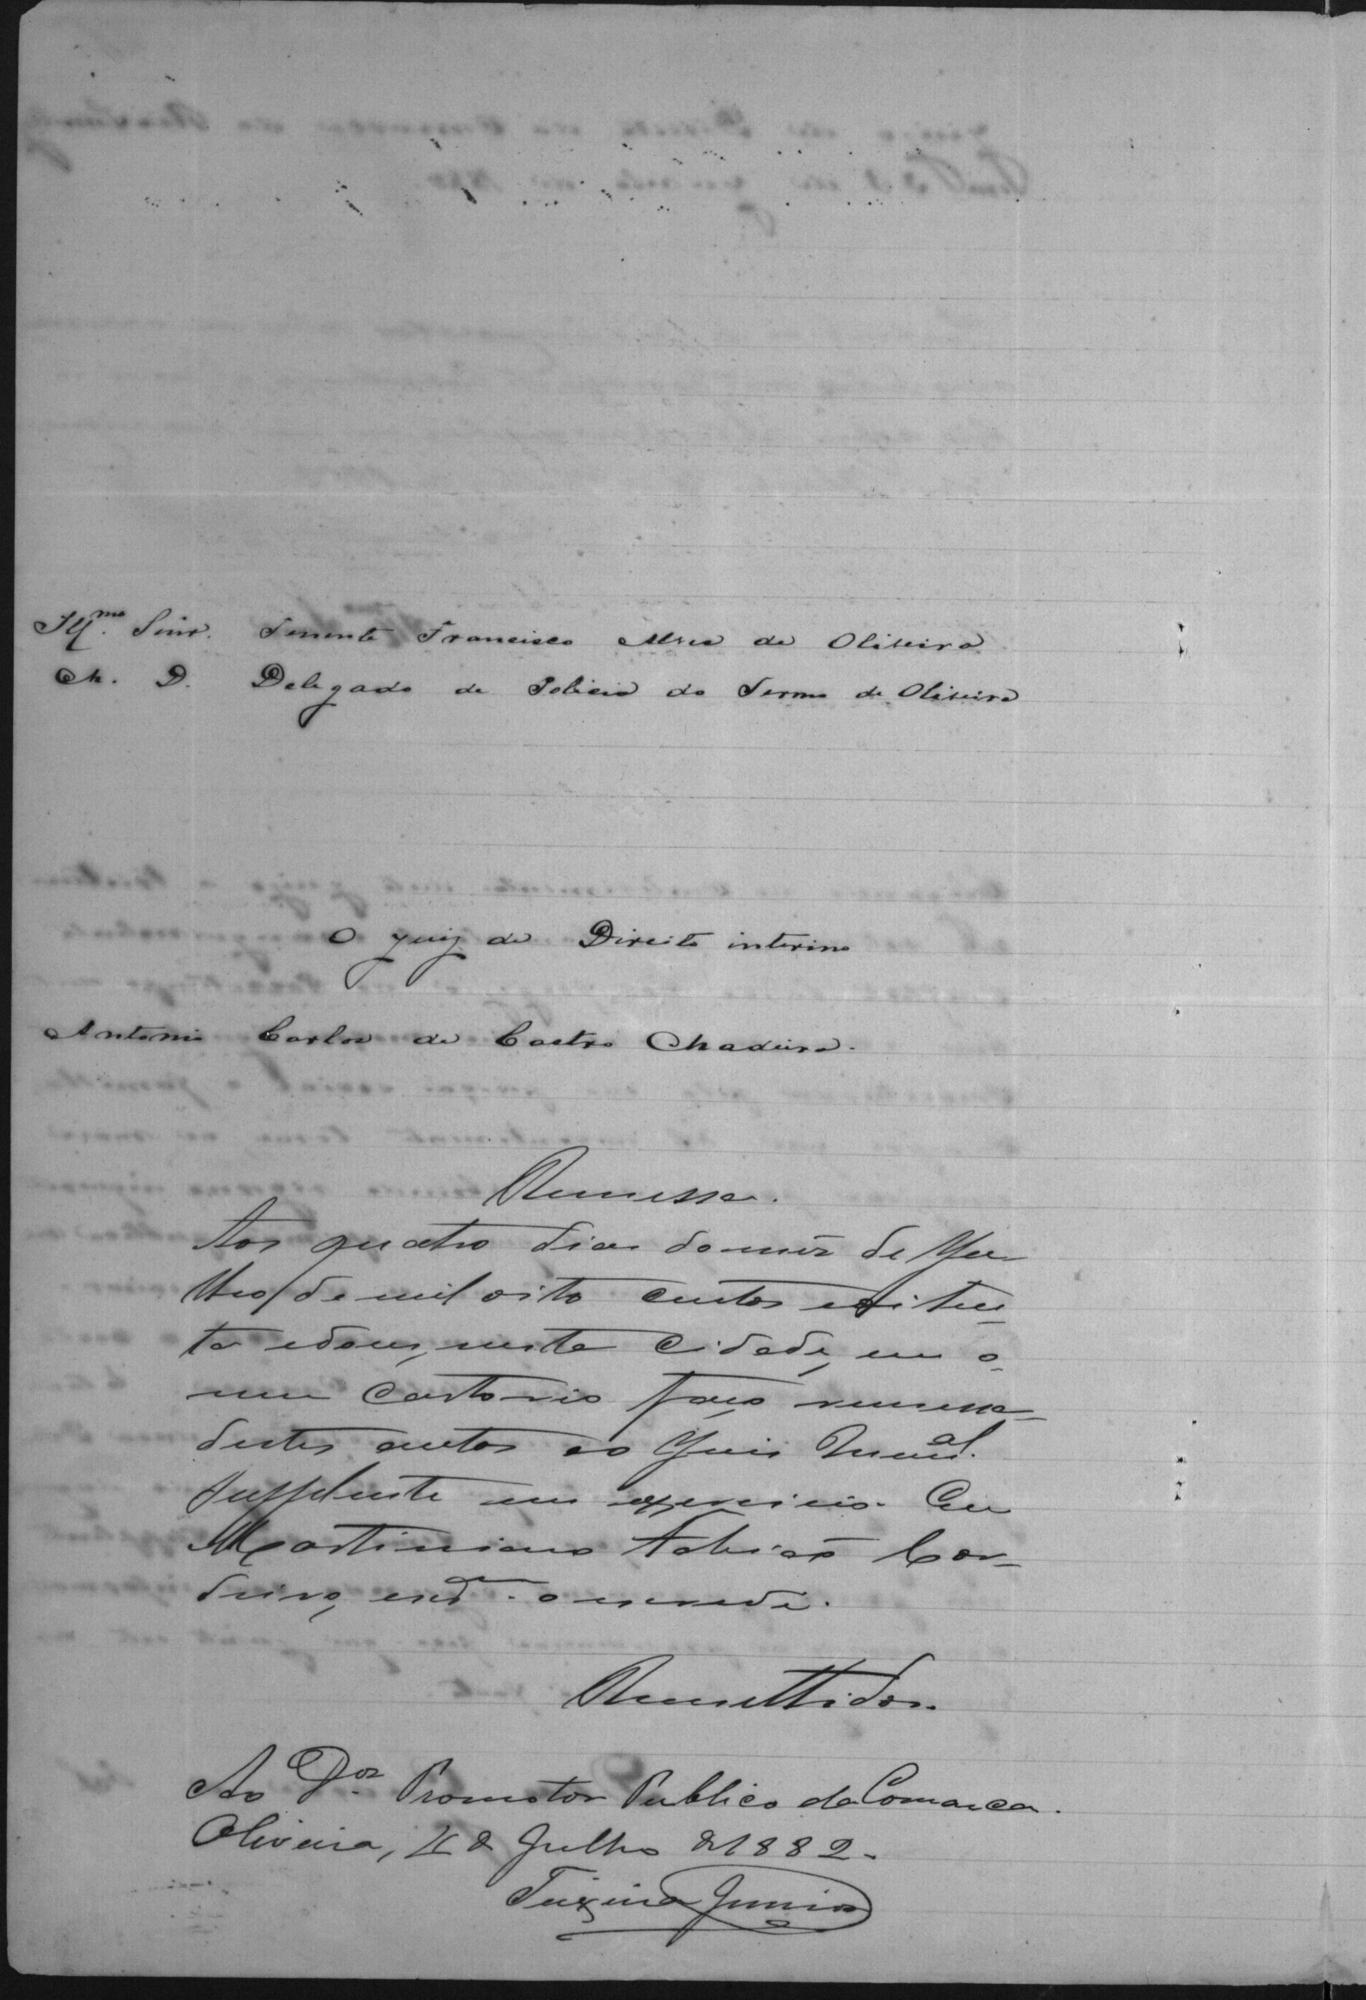 Ill.mo Senr. Tenente Francisco Alves de Oliveira
M. D. Delegado de Policia do Termo de Oliveira
O Juiz de Direito interino
Antonio Carlos de Castro Madeira.
Remessa.
Aos quatro dias do mez de Ju
lho, de mil oito centos e oiten-
ta e dous, nesta Cidade, em o
meu Cartorio faço remessa
destes autos ao Juiz Mun.al
Supplente em exercicio. Eu
Martiniano Fabião Cor-
deiro, escr.am o escrevi.
Remettidos.
Ao D.or Promotor Publico da Comarca.
Oliveira, 4 de Julho de 1882.
Teixeira Junior